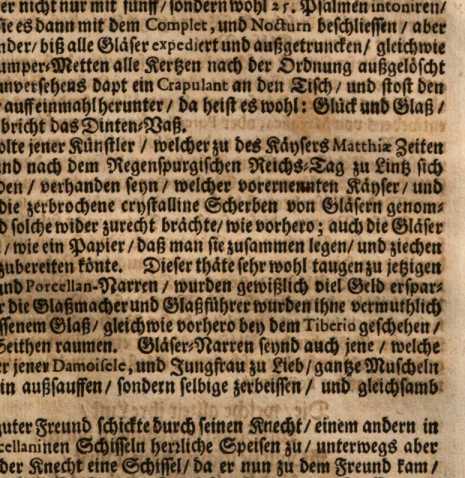 er nicht nur mit fünff / sondern wohl 25. Psalmen intoniren /
sie es dann mit dem Complet, und Nocturn beschliessen / aber
nder / biß alle Gläser expediert und außgetruncken / gleichwie
umper-Metten alle Kertzen nach der Ordnung außgelöscht
unversehens dapt ein Crapulant an den Tisch / und stost den
auff einmahl herunter / da heist es wohl: Glück und Glaß /
bricht das Dinten-Vaß.
olte jener Künstler / welcher zu des Käysers Matthiæ Zeiten
und nach dem Regenspurgischen Reichs-Tag zu Lintz sich
den / verhanden seyn / welcher vorernennten Käyser / und
die zerbrochene crystalline Scherben von Gläsern genom-
d solche wider zurecht brächte / wie vorhero; auch die Gläser
/ wie ein Papier / daß man sie zusammen legen / und ziechen
zubereiten könte. Dieser thäte sehr wohl taugen zu jetzigen
und Porcellan-Narren / wurden gewißlich viel Geld erspar-
r die Glaßmacher und Glaßführer wurden ihne vermuthlich
ssenem Glaß / gleichwie vorhero bey dem Tiberio geschehen /
Seithen raumen. Gläser-Narren seynd auch jene / welche
er jener Damoisele, und Jungfrau zu Lieb / gantze Muscheln
in außsauffen / sondern selbige zerbeissen / und gleichsamb
guter Freund schickte durch seinen Knecht / einem andern in
cellaninen Schisseln herzliche Speisen zu / unterwegs aber
der Knecht eine Schissel / da er nun zu dem Freund kam /